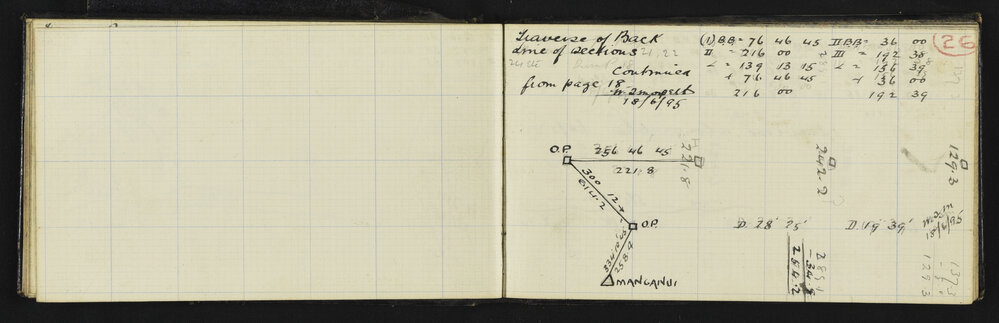 Traverse of Back
Line of sections 21, 22
Continued
from page 18
18/6/95
(1) BB = 76 46 45
II = 216 00
< = 139 13 15
+ 76 46 45
216 00
II BB = 36 00
III = 192 39
< = 156 39
+ 36 00
192 39
26
O.P. 256 46 45
221.8
221.8
242.2
129.3
300 12
614.2
O.P.
258.9
MANGANUI
D. 28' 25'
D. 19' 39'
285.1
-34.8
254.2
137.3
129.3